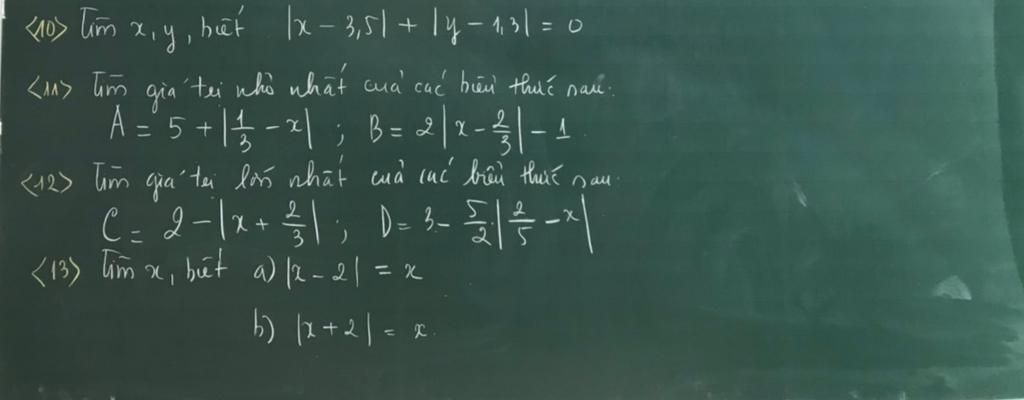 <10> Tìm x, y, biết |x - 3,5| + |y - 1,3| = 0
<11> Tìm giá trị nhỏ nhất của các biểu thức sau:
A = 5 + |1/3 - x| ; B = 2|x - 2/3| - 1
<12> Tìm giá trị lớn nhất của các biểu thức sau:
C = 2 - |x + 2/3| ; D = 3 - 5/2 |2/5 - x|
<13> Tìm x, biết a) |x - 2| = x
b) |x + 2| = x.